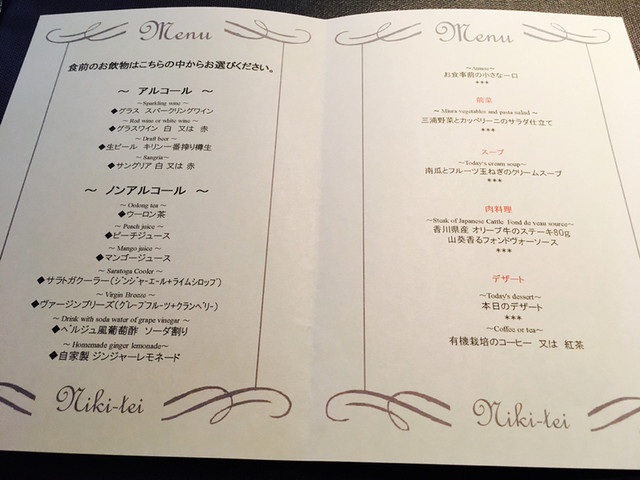 Menu
食前のお飲物はこちらの中からお選びください。
～ アルコール ～
～Sparkling wine～
◆グラス スパークリングワイン
～Red wine or white wine～
◆グラスワイン 白 又は 赤
～Draft beer～
◆生ビール キリン一番搾り樽生
～Sangria～
◆サングリア 白 又は 赤
～ ノンアルコール ～
～Oolong tea～
◆ウーロン茶
～Peach juice～
◆ピーチジュース
～Mango juice～
◆マンゴージュース
～Saratoga Cooler～
◆サラトガクーラー(ｼﾞﾝｼﾞｬｰｴｰﾙ+ﾗｲﾑｼﾛｯﾌﾟ)
～Virgin Breeze～
◆ヴァージンブリーズ(ｸﾞﾚｰﾌﾟﾌﾙｰﾂ+ｸﾗﾝﾍﾞﾘｰ)
～Drink with soda water of grape vinegar～
◆ベルジュ風葡萄酢 ソーダ割り
～Homemade ginger lemonade～
◆自家製 ジンジャーレモネード
Niki-tei
Menu
～Amuse～
お食事前の小さな一口
***
前菜
～Miura vegetables and pasta salad～
三浦野菜とカッペリーニのサラダ仕立て
***
スープ
～Today's cream soup～
南瓜とフルーツ玉ねぎのクリームスープ
***
肉料理
～Steak of Japanese Cattle Fond de veau source～
香川県産 オリーブ牛のステーキ80g
山葵香るフォンドヴォーソース
***
デザート
～Today's dessert～
本日のデザート
***
～Coffee or tea～
有機栽培のコーヒー 又は 紅茶
Niki-tei